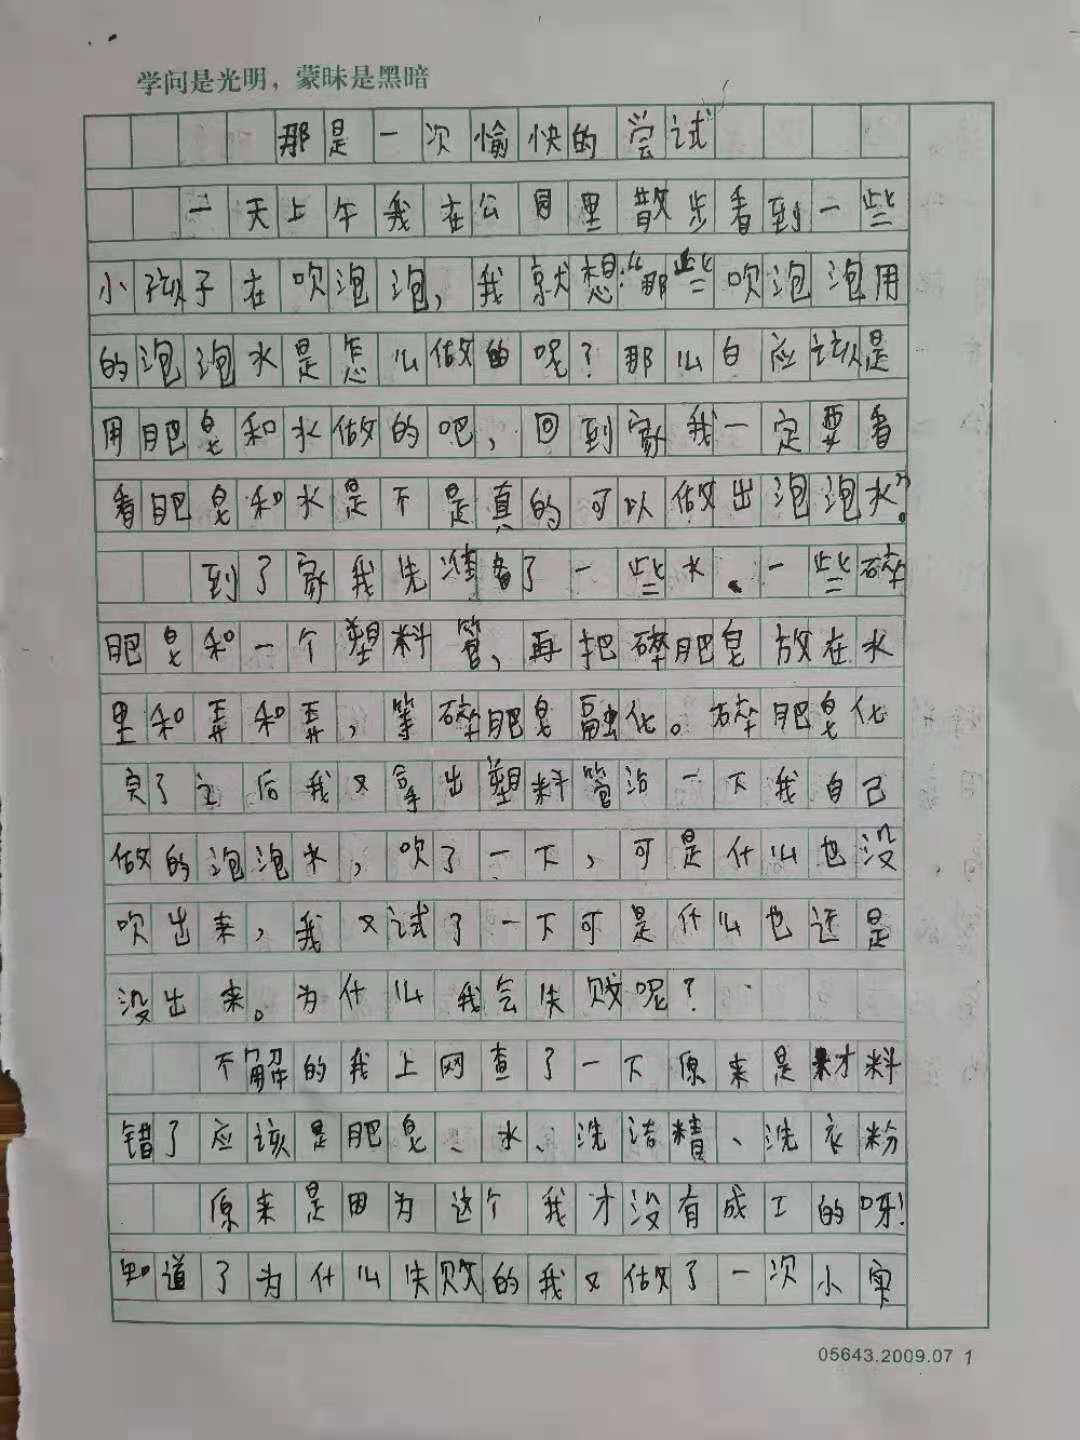 学问是光明，蒙昧是黑暗
那是一次愉快的尝试
一天上午我在公园里散步看到一些
小孩子在吹泡泡，我就想:“那些吹泡泡用
的泡泡水是怎么做的呢？那么白应该是
用肥皂和水做的吧，回到家我一定要看
看肥皂和水是不是真的可以做出泡泡水”。
到了家我先准备了一些水、一些碎
肥皂和一个塑料管，再把碎肥皂放在水
里和弄和弄，等碎肥皂融化。碎肥皂化
完了之后我又拿出塑料管沾一下我自己
做的泡泡水，吹了一下，可是什么也没
吹出来，我又试了一下可是什么也还是
没出来。为什么我会失败呢？
不解的我上网查了一下原来是材料
错了应该是肥皂、水、洗洁精、洗衣粉
原来是因为这个我才没有成工的呀！
知道了为什么失败的我又做了一次小实
05643.2009.07 1